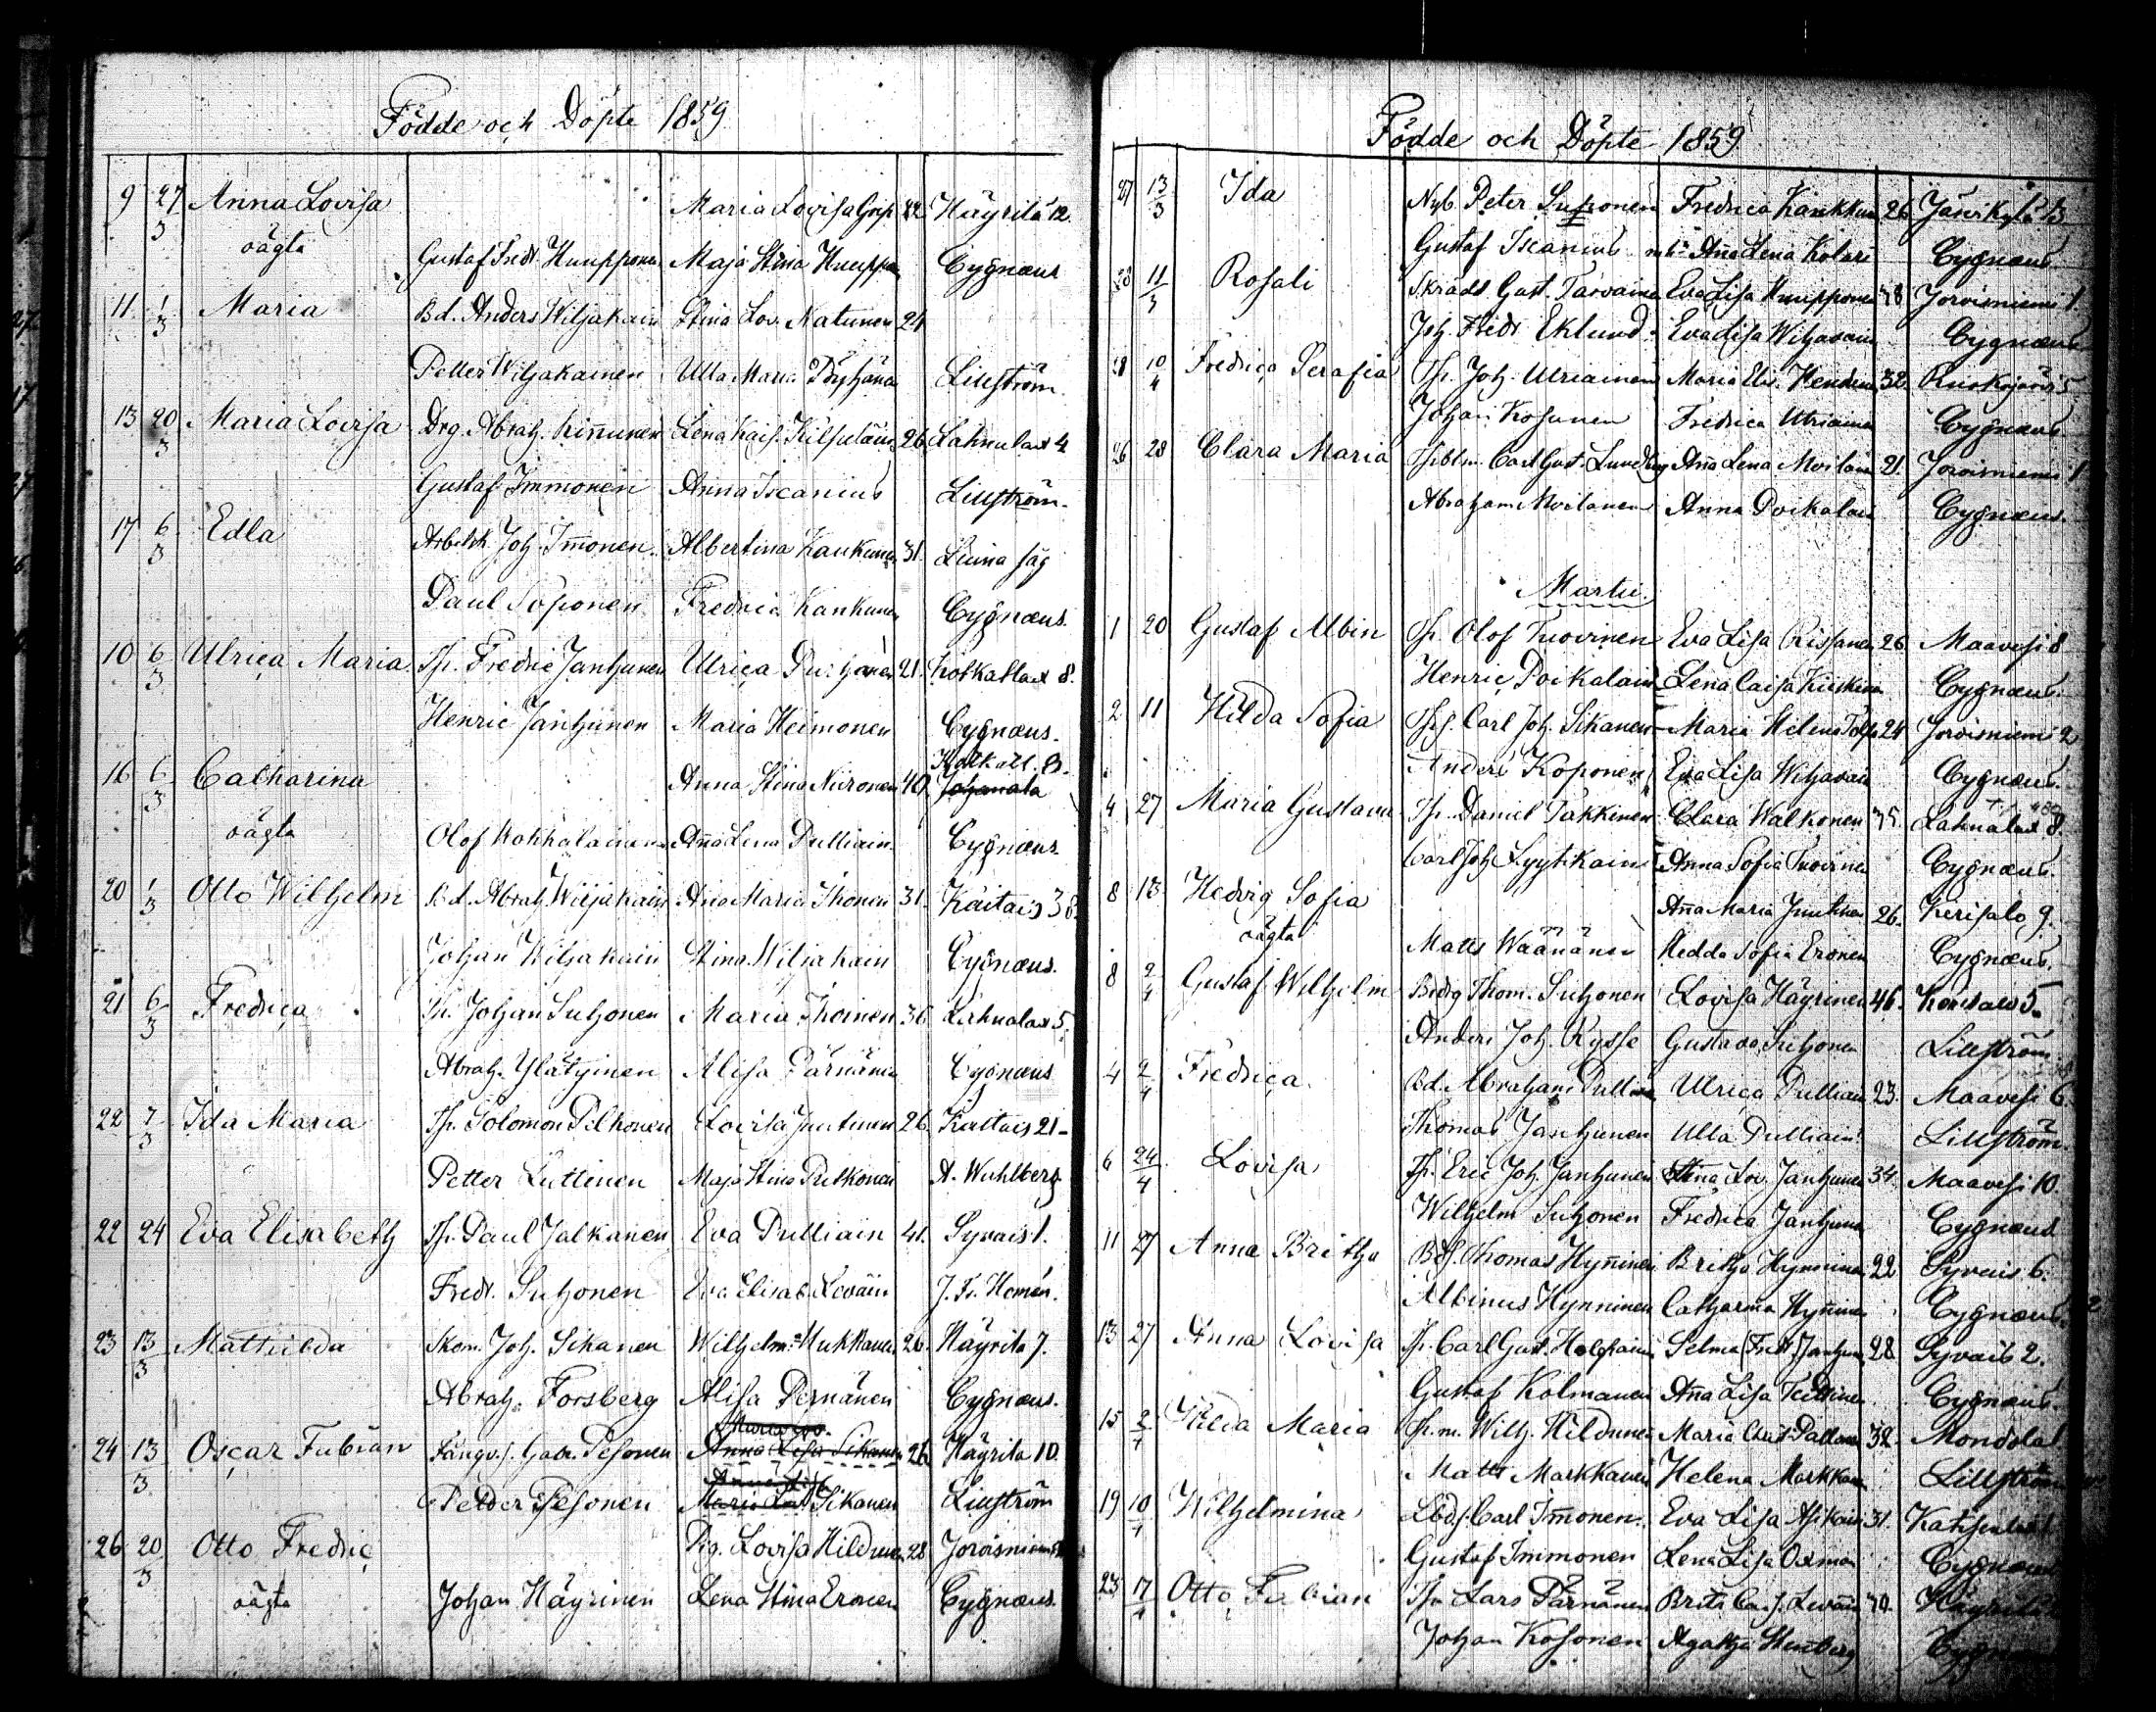 Födde och Döpte 1859
9 27/3 Anna Lovisa Maria Lovisa Grip 22 Häyrilä 12
oägta Gustaf Fredr. Huupponen Maja Stina Huuppon Cygnæus
11 1/3 Maria Bd. Anders Wiljakain Stina Lov. Natunen 24
Petter Wiljakainen Ulla Maria Pöyhönen Lillström
13 20/3 Maria Lovisa Drg Abrah. Kinnunen Lena Kais. 26 Lahnalax 4
Gustaf Immonen Anna Iscanius Lillström.
17 6/3 Edla Joh. Immonen Albertina Kaukunen 31. Luna såg
Paul Soponen Fredrica Kankunen Cygnæus.
10 6/3 Ulrica Maria Th. Fredric Janhunen Ulrica 21. Kotkatlax 8.
Henric Janhunen Maria Heimonen Cygnæus.
16 6/3 Catharina Anna Stina Niironen 40 Kotkatl. 8.
oägta Olof Kokkalainen Anna Lena Pulliain Cygnæus
20 1/3 Otto Wilhelm Bd. Abrah. Wiljakain Anna Maria Ihonen 31. Kaitais 38.
Johan Wiljakain Stina Wiljakain Cygnæus.
21 6/3 Fredrica Th. Johan Suhonen Maria Ihoinen 36 Lahnalax 5.
Abrah. Ylätyinen Alisa Pärnänen Cygnæus
22 7/3 Ida Maria Th. Solomon Pelkonen Lovisa Juutinen 26. Kaitais 21
Petter Luttinen Maja Stina Pulkonen A. Wahlberg
22 24 Eva Elisabeth Th. Paul Jalkanen Eva Pulliain 41. Syvais 1.
Fredr. Suhonen Eva Elisab. Leväin J. Fr. Homén.
23 13/3 Mathilda Skom. Joh. Sikanen Wilhelm. Mukkanen 26. Häyrilä 7.
Abrah. Forsberg Alisa Pernänen Cygnæus.
24 13/3 Oscar Fabian Fångv. Gabr. Pesonen Anna Lisa Sikanen 26 Häyrilä 10.
Petter Pesonen Maria Lov. Sikanen Lillström
26 20/3 Otto Fredric Pig. Lovisa Hildunen 28 Joroisniemi
oägta Johan Häyrinen Lena Stina Eronen Cygnæus.
Födde och Döpte 1859
27 13/3 Ida Nyb. Peter Fredrica Kaukkunen 26. Järvikylä 13
Gustaf Iscanius Anna Lena Kolari Cygnæus.
28 11/3 Rosali Skrädd. Gust. Tarvainen Eva Lisa Huupponen 38 Joroisniemi 1.
Joh. Fredr Eklund Eva Lisa Wiljavain Cygnæus
28 10/4 Fredrica Serafia Th. Joh. Ulriainen Maria Elis. 32. Ruokojärvi 5.
Johan Kosunen Fredrica Ulriainen Cygnæus.
26 28 Clara Maria Carl Gust. Lundberg Anna Lena Moilain 21. Joroisniemi 1
Abraham Moilanen Anna Poikalain Cygnæus.
Martii.
1 20 Gustaf Albin Th. Olof Tuovinen Eva Lisa Rissanen 26. Maavesi 8
Henric Poikalain Lena Caisa Cygnæus.
2 11 Hilda Sofia Carl Joh. Sikanen Maria Helena 24 Joroisniemi 2
Anders Koponen Eva Lisa Wiljavain Cygnæus.
4 27 Maria Gustava Th. Daniel Takkinen Clara Walkonen 35. Lahnalax 8.
Carl Joh. Lyytikain Anna Sofia Tuovinen Cygnæus.
8 13 Hedvig Sofia Anna Maria Juutinen 26. Kerisalo 9.
oägta Matts Wäänänen Hedda Sofia Eronen Cygnæus.
8 2/4 Gustaf Wilhelm Thom. Suhonen Lovisa Häyrinen 46. Kerisalo 5.
Anders Joh. Rysse Gustava Suhonen Lillström.
4 2/4 Fredrica Bd. Abraham Pulliain Ulrica Pulliain 23. Maavesi 6.
Thomas Janhunen Ulla Pulliain Lillström.
6 24/4 Lovisa Th. Eric Joh. Janhunen Stina Lov. Janhunen 34. Maavesi 10.
Wilhelm Suhonen Fredrica Janhunen Cygnæus
11 27 Anna Britha Bds. Thomas Hynninen Britha Hynninen 22 Syvais 6.
Albinus Hynninen Catharina Hynninen Cygnæus.
13 27 Anna Lovisa Th. Carl Gust. Selma (Fredr.) Janhun 28 Syvais 2.
Gustaf Kolmanen Anna Lisa Teittinen Cygnæus.
15 2/4 Hilda Maria Th. m. Wilh. Hildunen Maria Christ. 32. Mondola 1
Matts Markkanen Helena Markkan Lillström
19 10/4 Wilhelmina Lbds. Carl Immonen Eva Lisa Asikain 31.
Gustaf Immonen Lena Lisa Oxman Cygnæus
23 17/4 Otto Fabian Th. Lars Pärnänen Brita Cais. Leväin 40. Häyrilä
Johan Kosonen Agatha Cygnæus